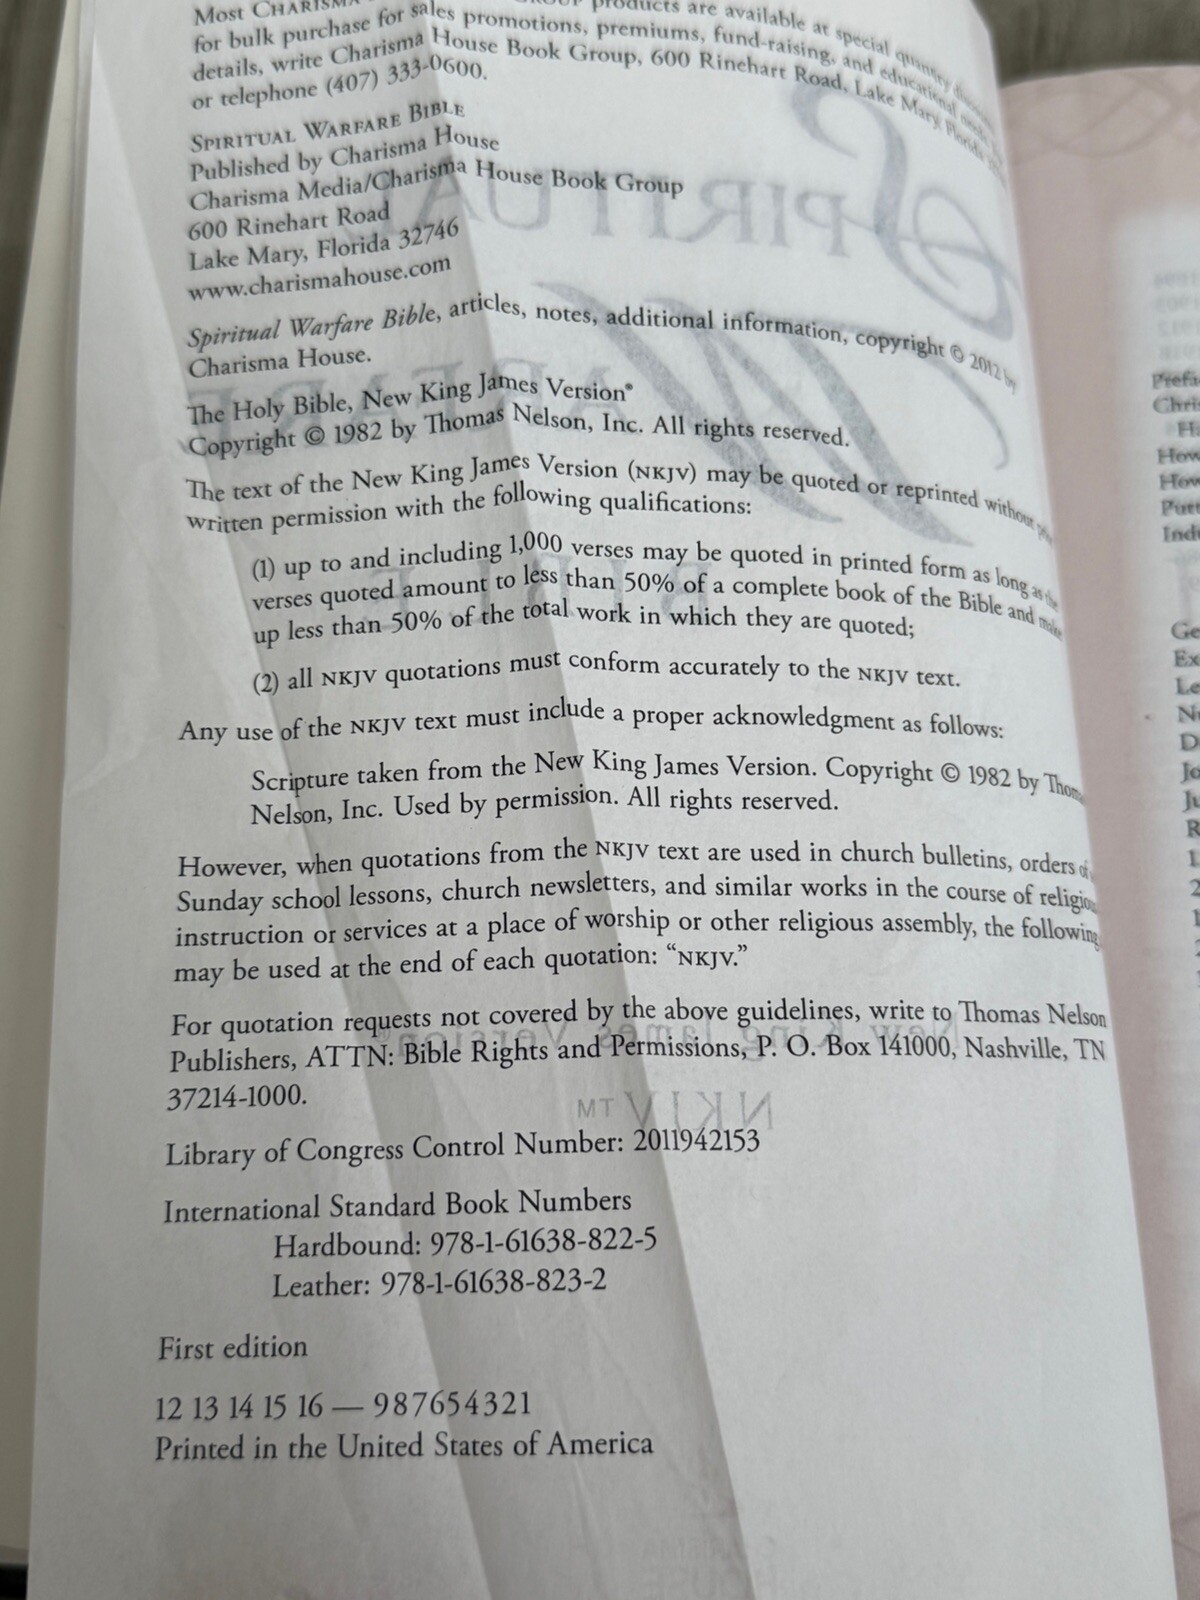 Most Charisma products are available at special quantity
for bulk purchase for sales promotions, premiums, fund-raising, and educational
details, write Charisma House Book Group, 600 Rinehart Road, Lake Mary, Florida
or telephone (407) 333-0600.
Spiritual Warfare Bible
Published by Charisma House
Charisma Media/Charisma House Book Group
600 Rinehart Road
Lake Mary, Florida 32746
www.charismahouse.com
Spiritual Warfare Bible, articles, notes, additional information, copyright © 2012 by
Charisma House.
The Holy Bible, New King James Version®
Copyright © 1982 by Thomas Nelson, Inc. All rights reserved.
The text of the New King James Version (NKJV) may be quoted or reprinted without
written permission with the following qualifications:
(1) up to and including 1,000 verses may be quoted in printed form as long as the
verses quoted amount to less than 50% of a complete book of the Bible and make
up less than 50% of the total work in which they are quoted;
(2) all NKJV quotations must conform accurately to the NKJV text.
Any use of the NKJV text must include a proper acknowledgment as follows:
Scripture taken from the New King James Version. Copyright © 1982 by Thomas
Nelson, Inc. Used by permission. All rights reserved.
However, when quotations from the NKJV text are used in church bulletins, orders of
Sunday school lessons, church newsletters, and similar works in the course of religious
instruction or services at a place of worship or other religious assembly, the following
may be used at the end of each quotation: “NKJV.”
For quotation requests not covered by the above guidelines, write to Thomas Nelson
Publishers, ATTN: Bible Rights and Permissions, P. O. Box 141000, Nashville, TN
37214-1000.
Library of Congress Control Number: 2011942153
International Standard Book Numbers
Hardbound: 978-1-61638-822-5
Leather: 978-1-61638-823-2
First edition
12 13 14 15 16 — 987654321
Printed in the United States of America